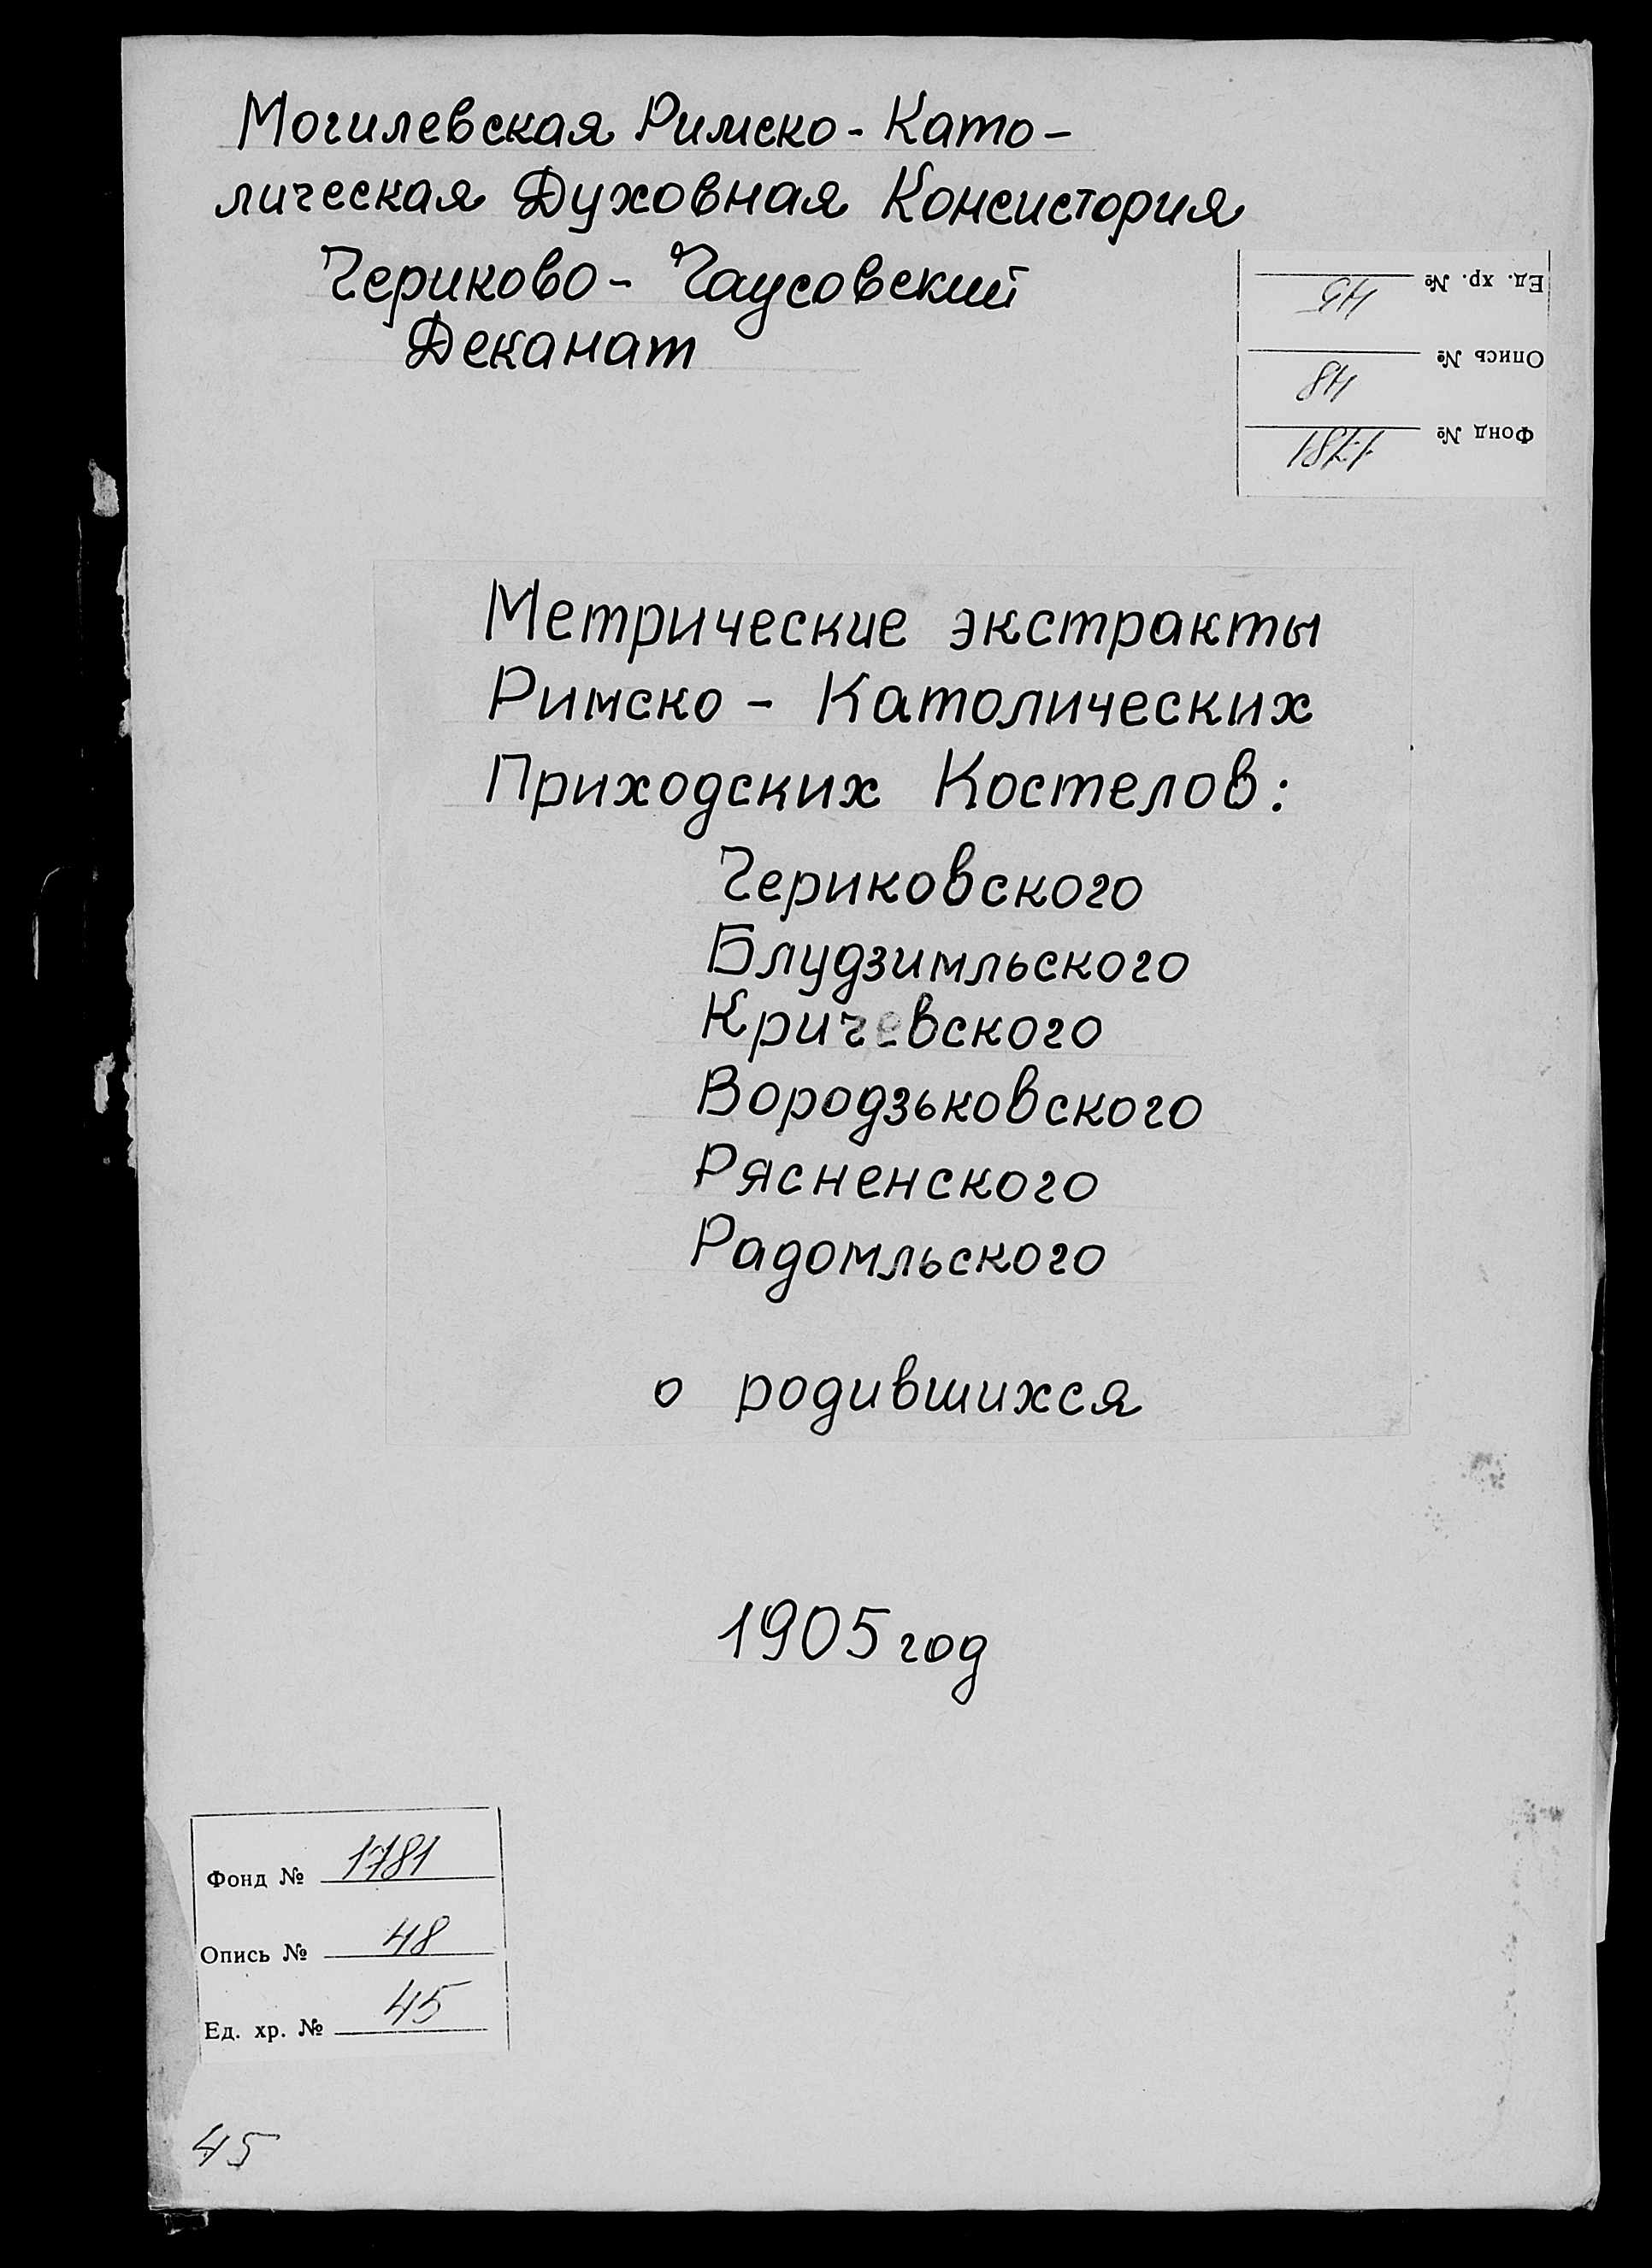 Могилевская Римско-Като-
лическая Духовная Консистория
Чериково-Чаусовский
Деканат
Ед. хр. № 45
Опись № 48
Фонд № 1781
Метрические экстракты
Римско-Католических
Приходских Костелов:
Чериковского
Блудзимльского
Кричевского
Вородзьковского
Рясненского
Радомльского
о родившихся
1905 год
Фонд № 1781
Опись № 48
Ед. хр. № 45
45